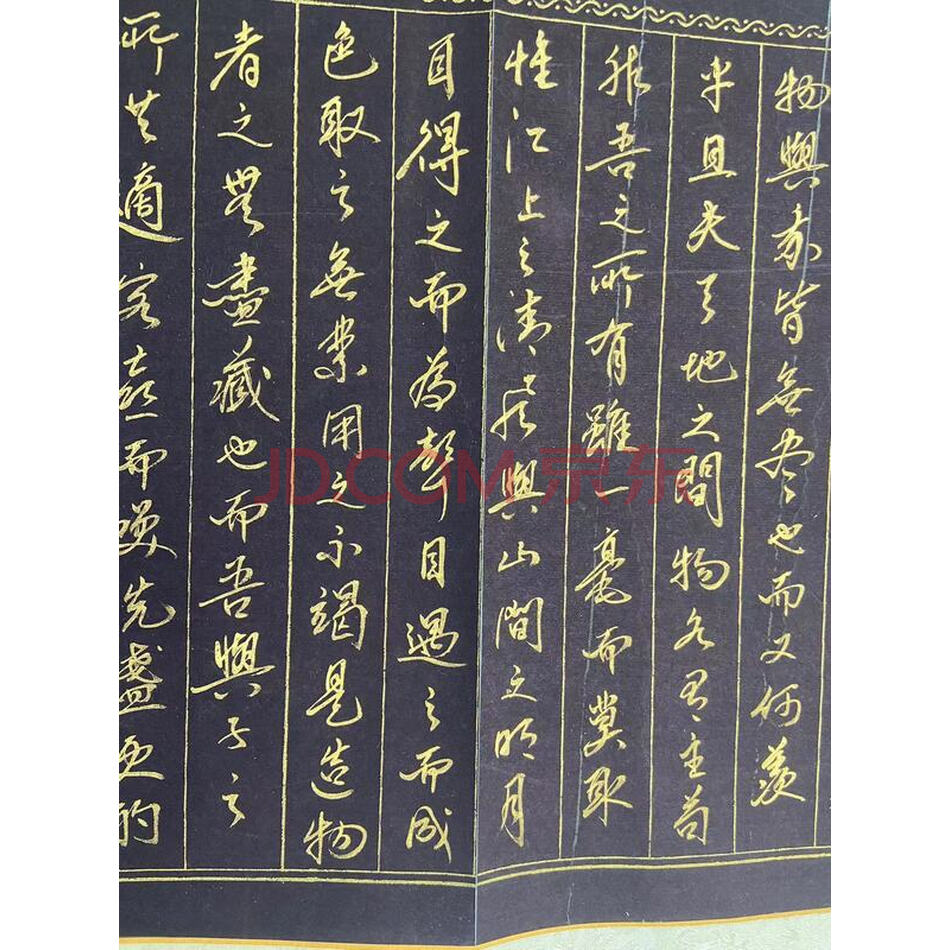 物與我皆無盡也而又何羨
乎且夫天地之間物各有主苟
非吾之所有雖一毫而莫取
惟江上之清風與山間之明月
耳得之而為聲目遇之而成
色取之無禁用之不竭是造物
者之無盡藏也而吾與子之
所共適客喜而笑洗盞更酌
JD.COM 京东